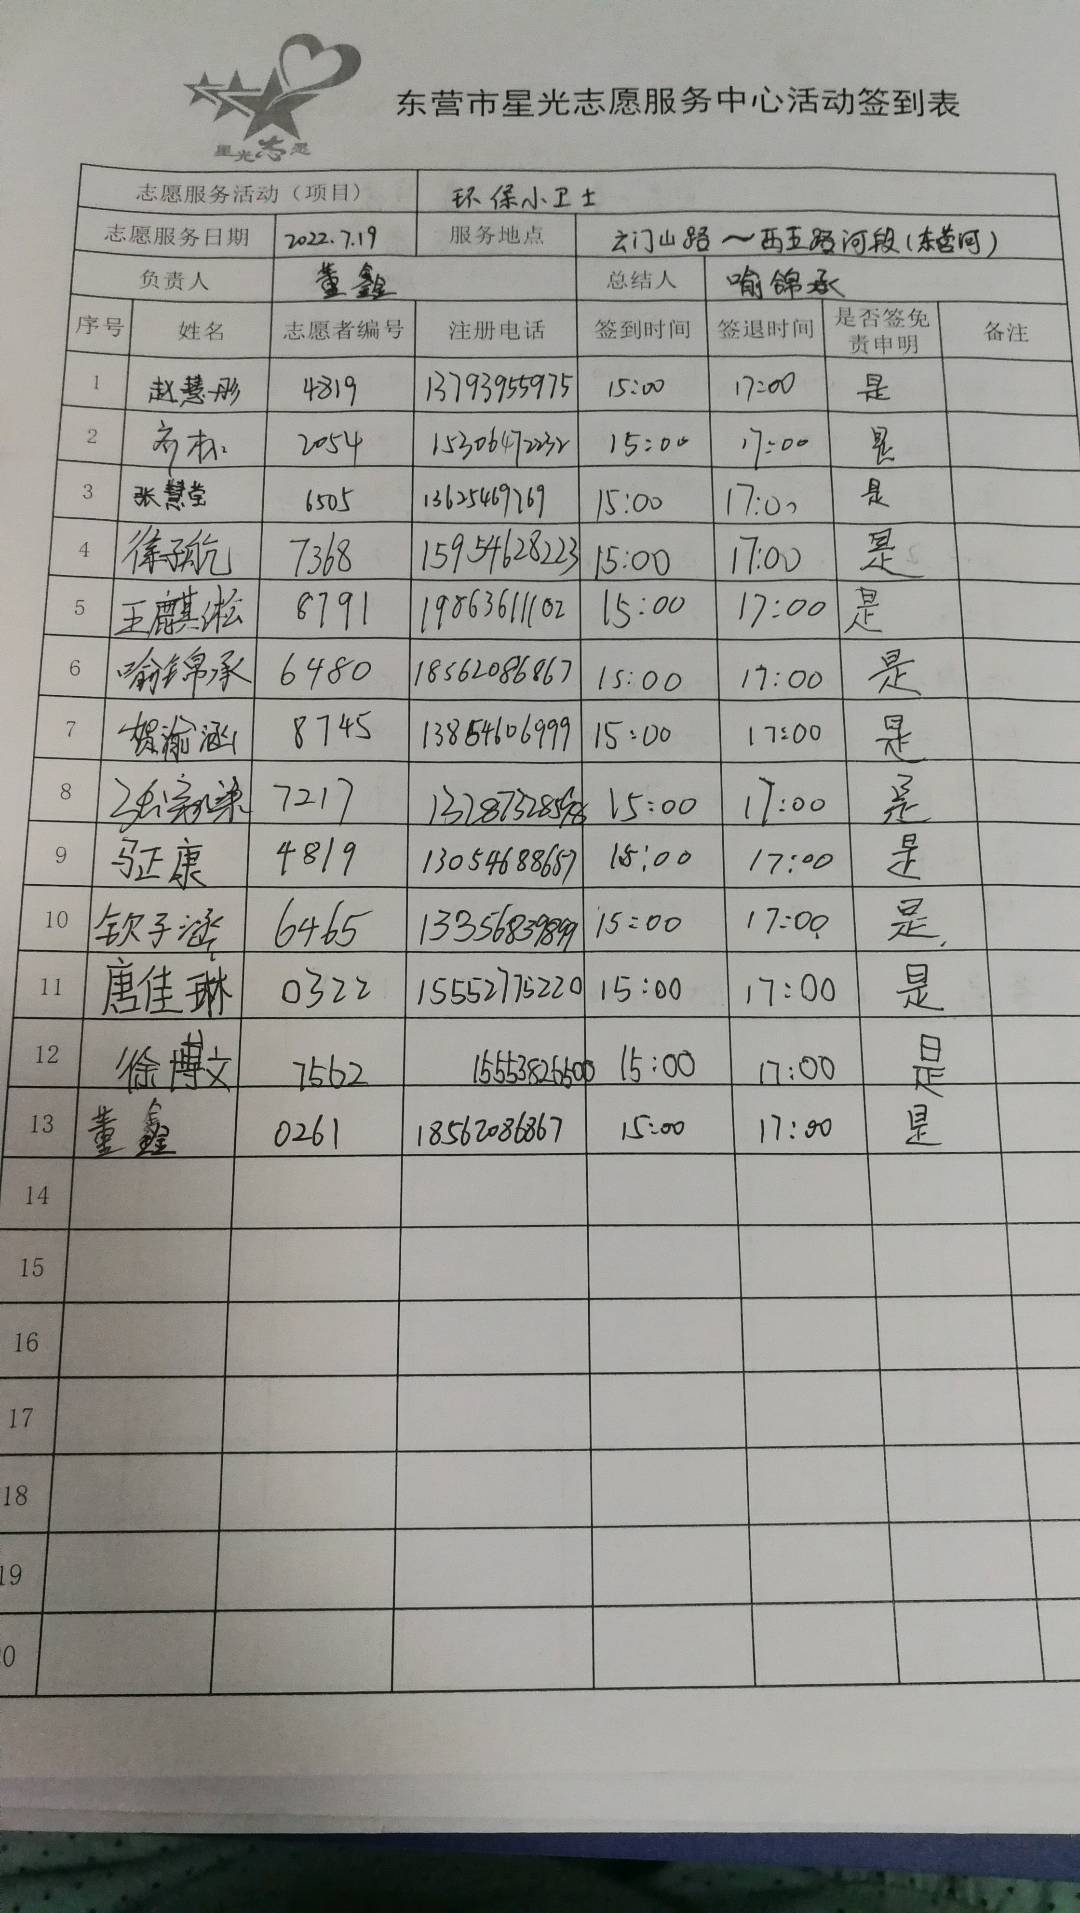 星光志愿
东营市星光志愿服务中心活动签到表
志愿服务活动（项目） 环保小卫士
志愿服务日期 2022.7.19 服务地点 云门山路～西五路河段(东营河)
负责人 董鑫 总结人 喻锦承
序号 姓名 志愿者编号 注册电话 签到时间 签退时间 是否签免责申明 备注
1 赵慧彤 4819 13793955975 15:00 17:00 是
2 2054 15306472232 15:00 17:00 是
3 张慧堂 6505 13625469769 15:00 17:00 是
4 徐子航 7368 15954628223 15:00 17:00 是
5 王麒淞 8791 19863611102 15:00 17:00 是
6 喻锦承 6480 18562086867 15:00 17:00 是
7 渝涵 8745 13854606999 15:00 17:00 是
8 7217 15:00 17:00 是
9 马正康 4819 13054688657 15:00 17:00 是
10 钦子涵 6465 13356839899 15:00 17:00 是
11 唐佳琳 0322 15552775220 15:00 17:00 是
12 徐博文 7562 15553826500 15:00 17:00 是
13 董鑫 0261 18562086867 15:00 17:00 是
14
15
16
17
18
19